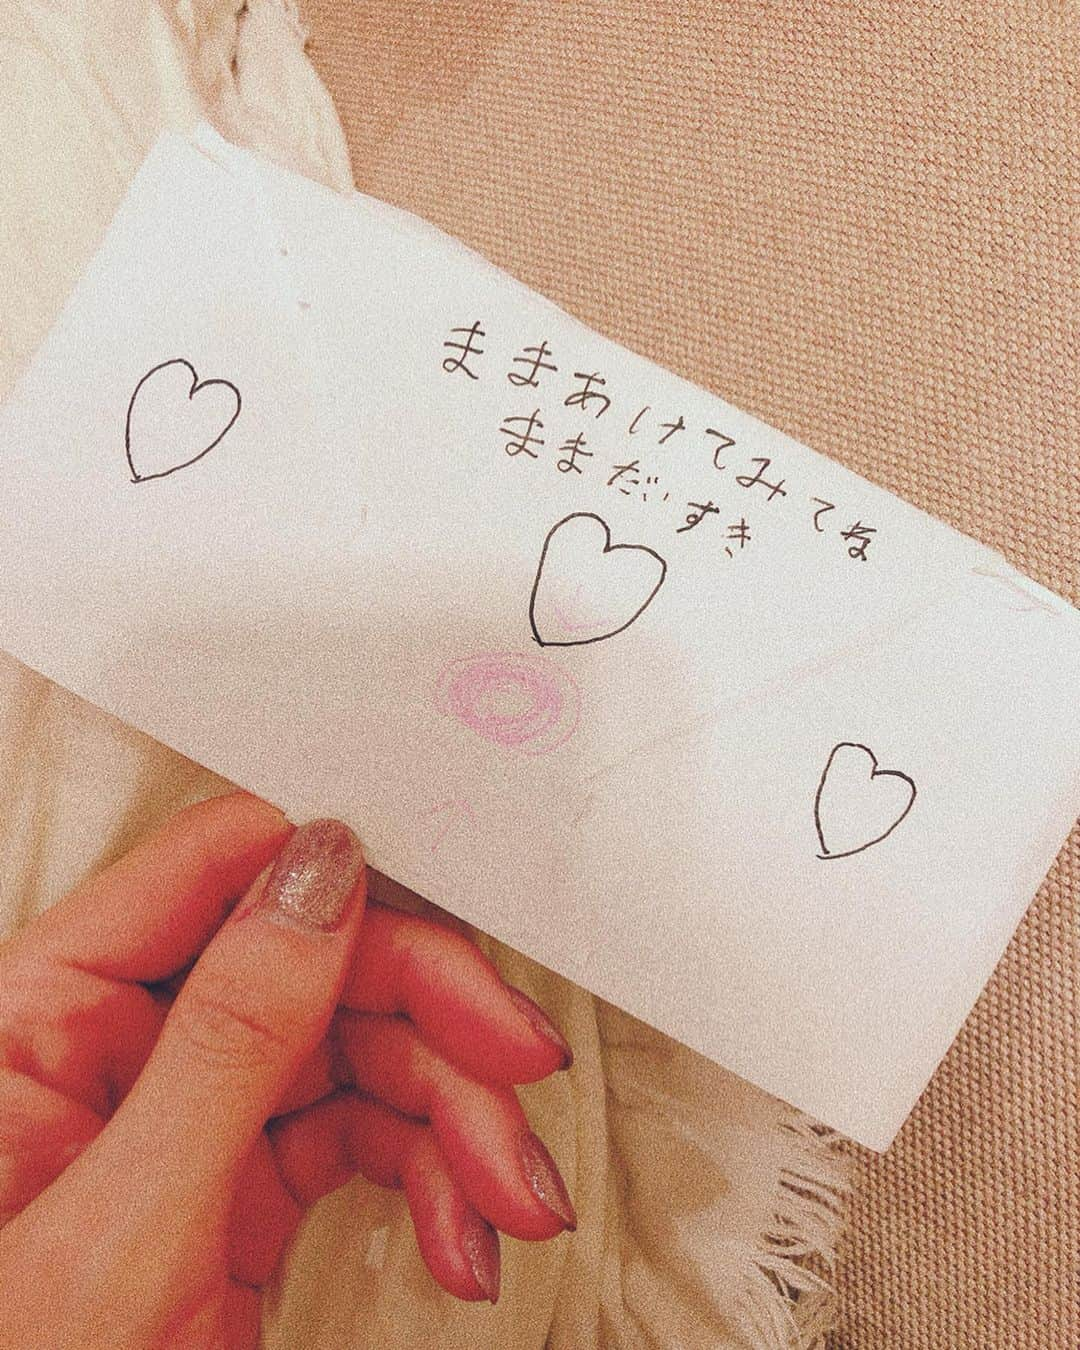 ままあけてみてね
ままだいすき